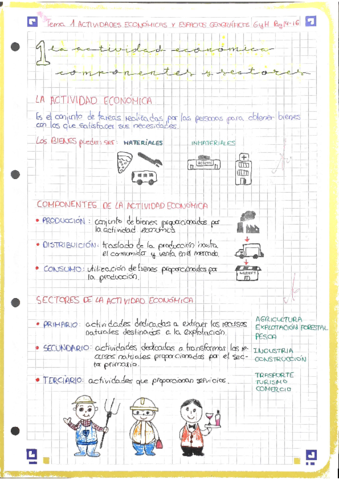 Tema 1 ACTIVIDADES ECONÓMICAS Y ESPACIOS GEOGRÁFICOS GyH
1 la actividad económica
componentes y sectores
LA ACTIVIDAD ECONÓMICA
Es el conjunto de tareas realizadas por las personas para obtener bienes
con los que satisfacer sus necesidades.
Los BIENES pueden ser: MATERIALES INMATERIALES
COMPONENTES DE LA ACTIVIDAD ECONÓMICA
• PRODUCCIÓN: conjunto de bienes proporcionados por
la actividad económica
• DISTRIBUCIÓN: traslado de la producción hasta
el consumidor y venta en el mercado
• CONSUMO: utilización de bienes proporcionados por
la producción.
SECTORES DE LA ACTIVIDAD ECONÓMICA
• PRIMARIO: actividades dedicadas a extraer los recursos
naturales destinados a la explotación.
• SECUNDARIO: actividades dedicadas a transformar los re-
cursos naturales proporcionados por el sec-
tor primario.
• TERCIARIO: actividades que proporcionan servicios.
AGRICULTURA
EXPLOTACIÓN FORESTAL
PESCA
INDUSTRIA
CONSTRUCCIÓN
TRASPORTE
TURISMO
COMERCIO